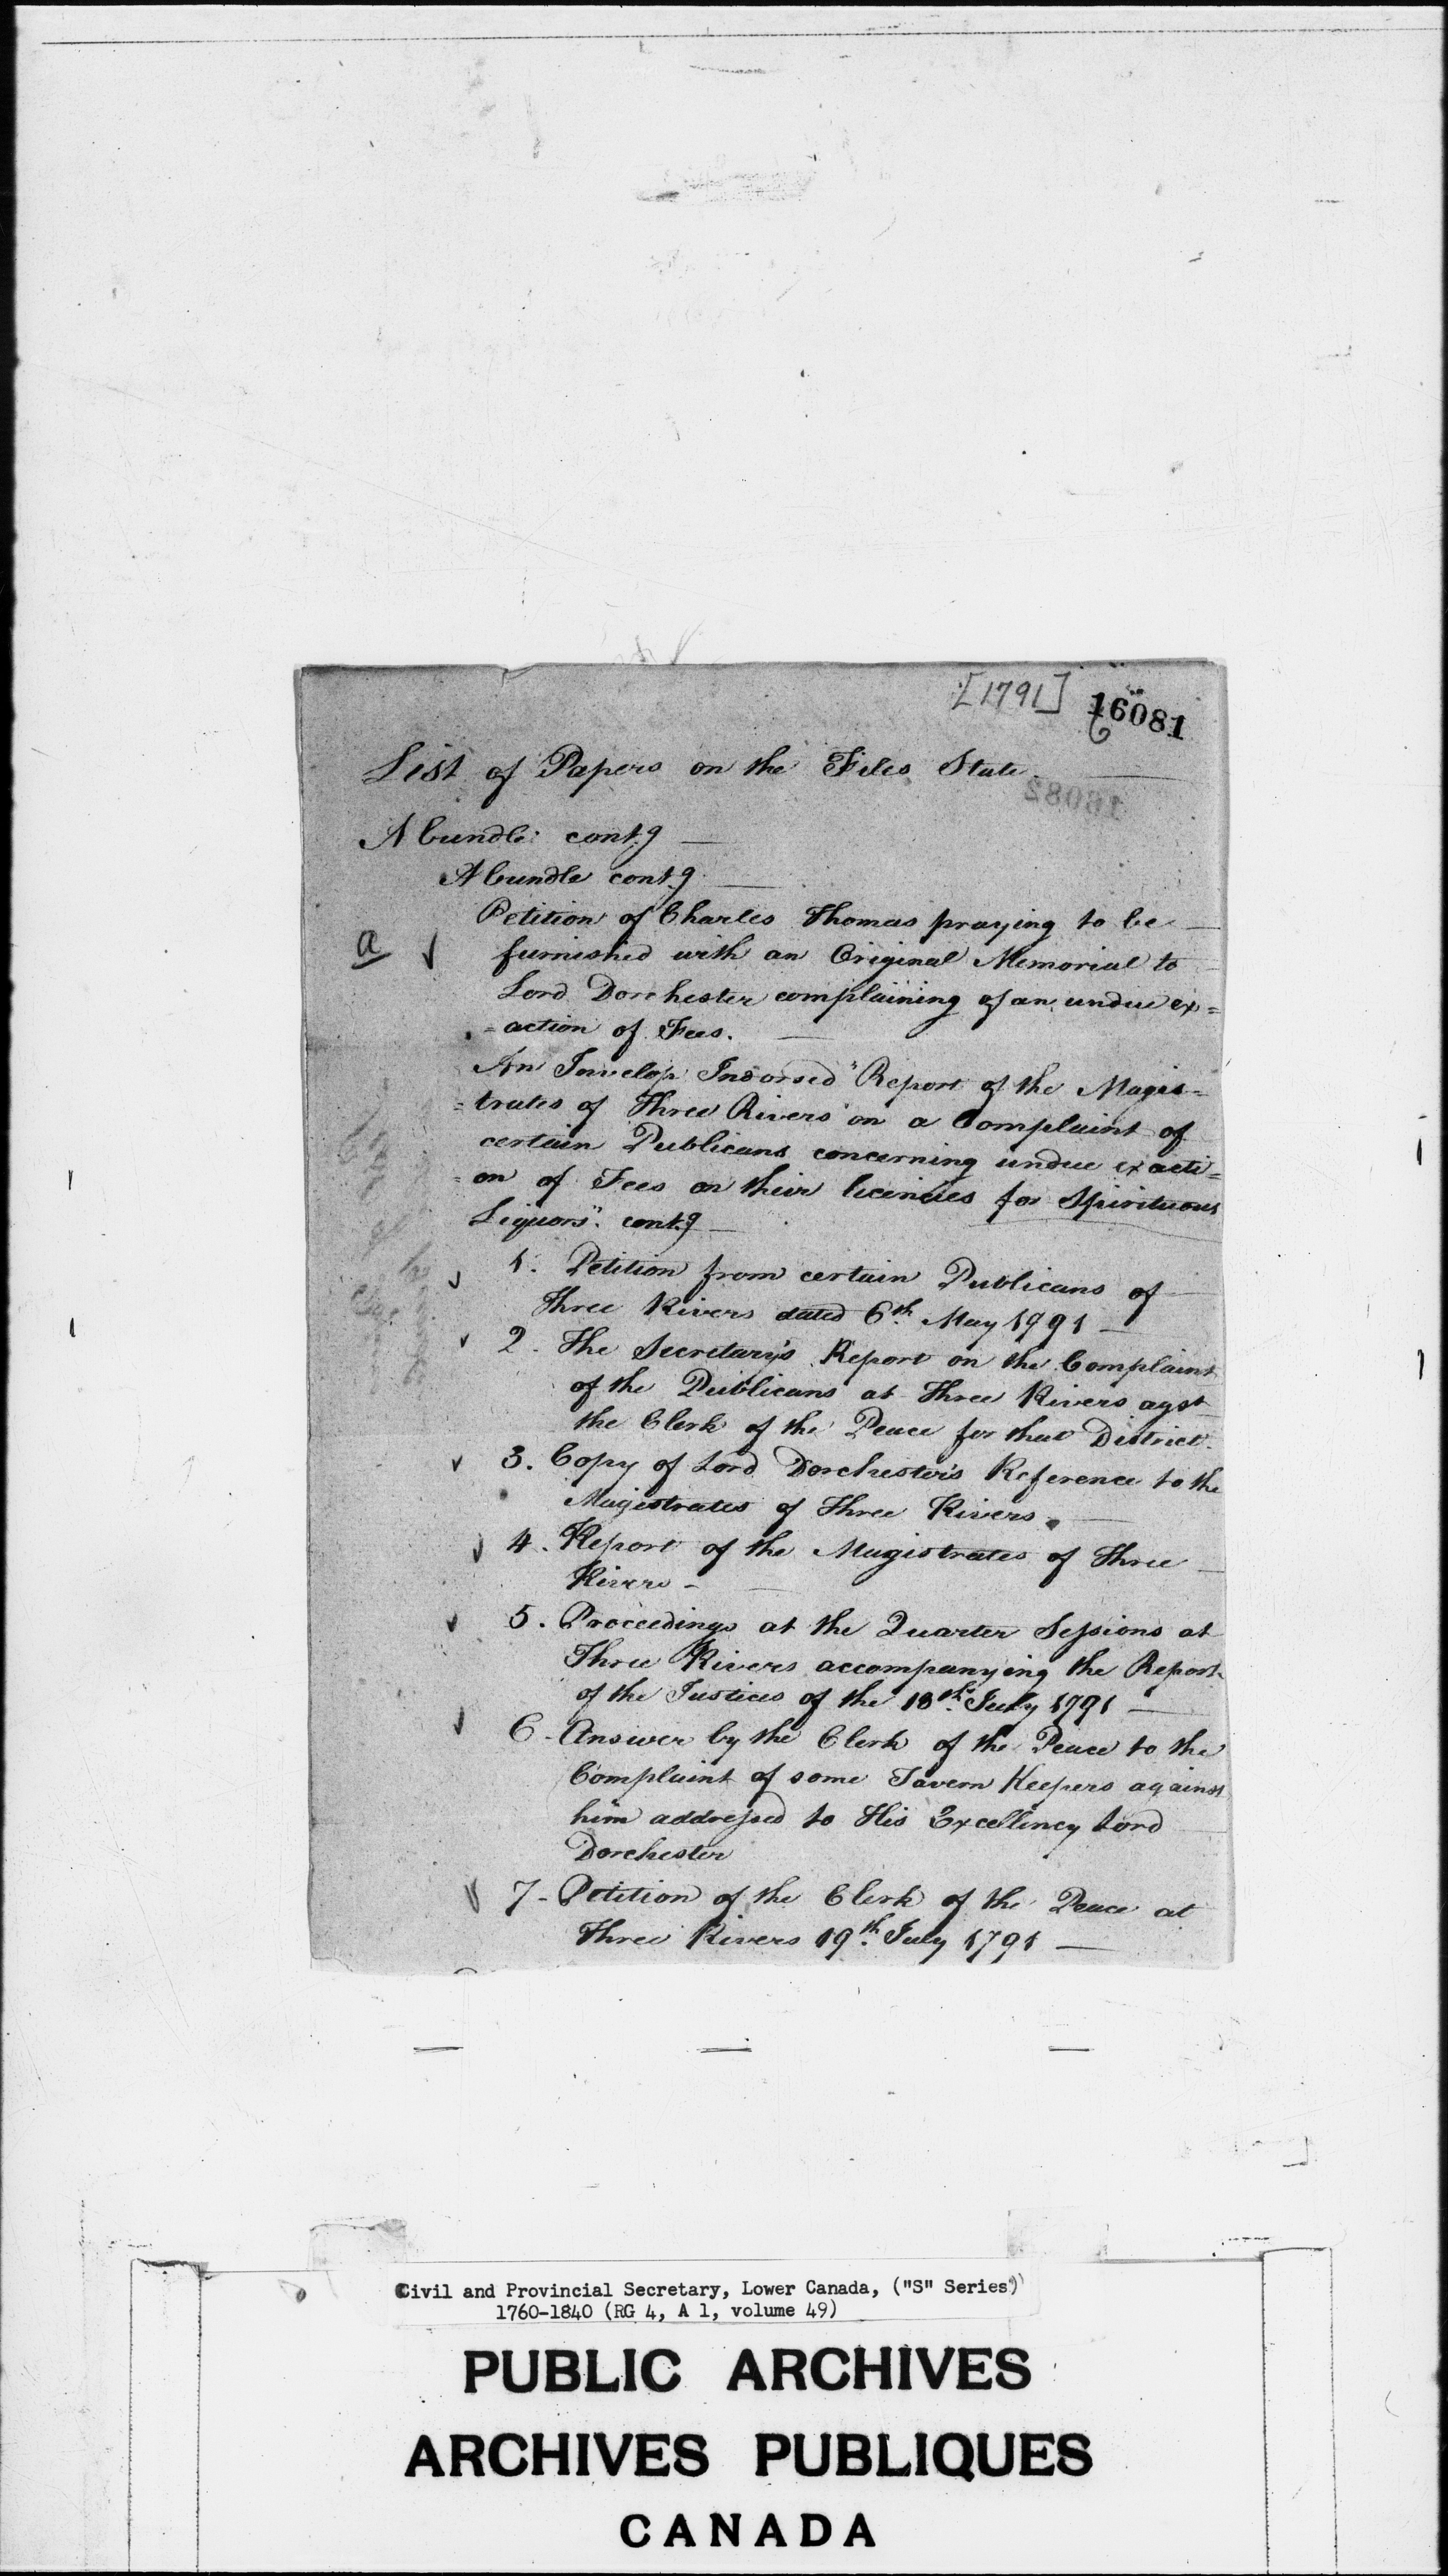 [1791] 16081
List of Papers on the Files State
16082
A bundle contg —
A bundle contg —
Petition of Charles Thomas praying to be
a ✓ furnished with an Original Memorial to
Lord Dorchester complaining of an undue ex=
=action of Fees. —
An Invelop Indorsed "Report of the Magis=
=trates of Three Rivers on a Complaint of
certain Publicans concerning undue exacti=
=on of Fees on their licences for Spirituous
Liquors". contg —
✓ 1. Petition from certain Publicans of
Three Rivers dated 6th May 1791 —
✓ 2. The Secretary's Report on the Complaint
of the Publicans at Three Rivers agst
the Clerk of the Peace for that District.
✓ 3. Copy of Lord Dorchester's Reference to the
Magistrates of Three Rivers. —
✓ 4. Report of the Magistrates of Three
Rivers —
✓ 5. Proceedings at the Quarter Sessions at
Three Rivers accompanying the Report
of the Justices of the 18th July 1791 —
✓ 6 - Answer by the Clerk of the Peace to the
Complaint of some Tavern Keepers against
him addressed to His Excellency Lord
Dorchester
✓ 7 - Petition of the Clerk of the Peace at
Three Rivers 19th July 1791 —
Civil and Provincial Secretary, Lower Canada, ("S" Series)
1760-1840 (RG 4, A 1, volume 49)
PUBLIC ARCHIVES
ARCHIVES PUBLIQUES
CANADA